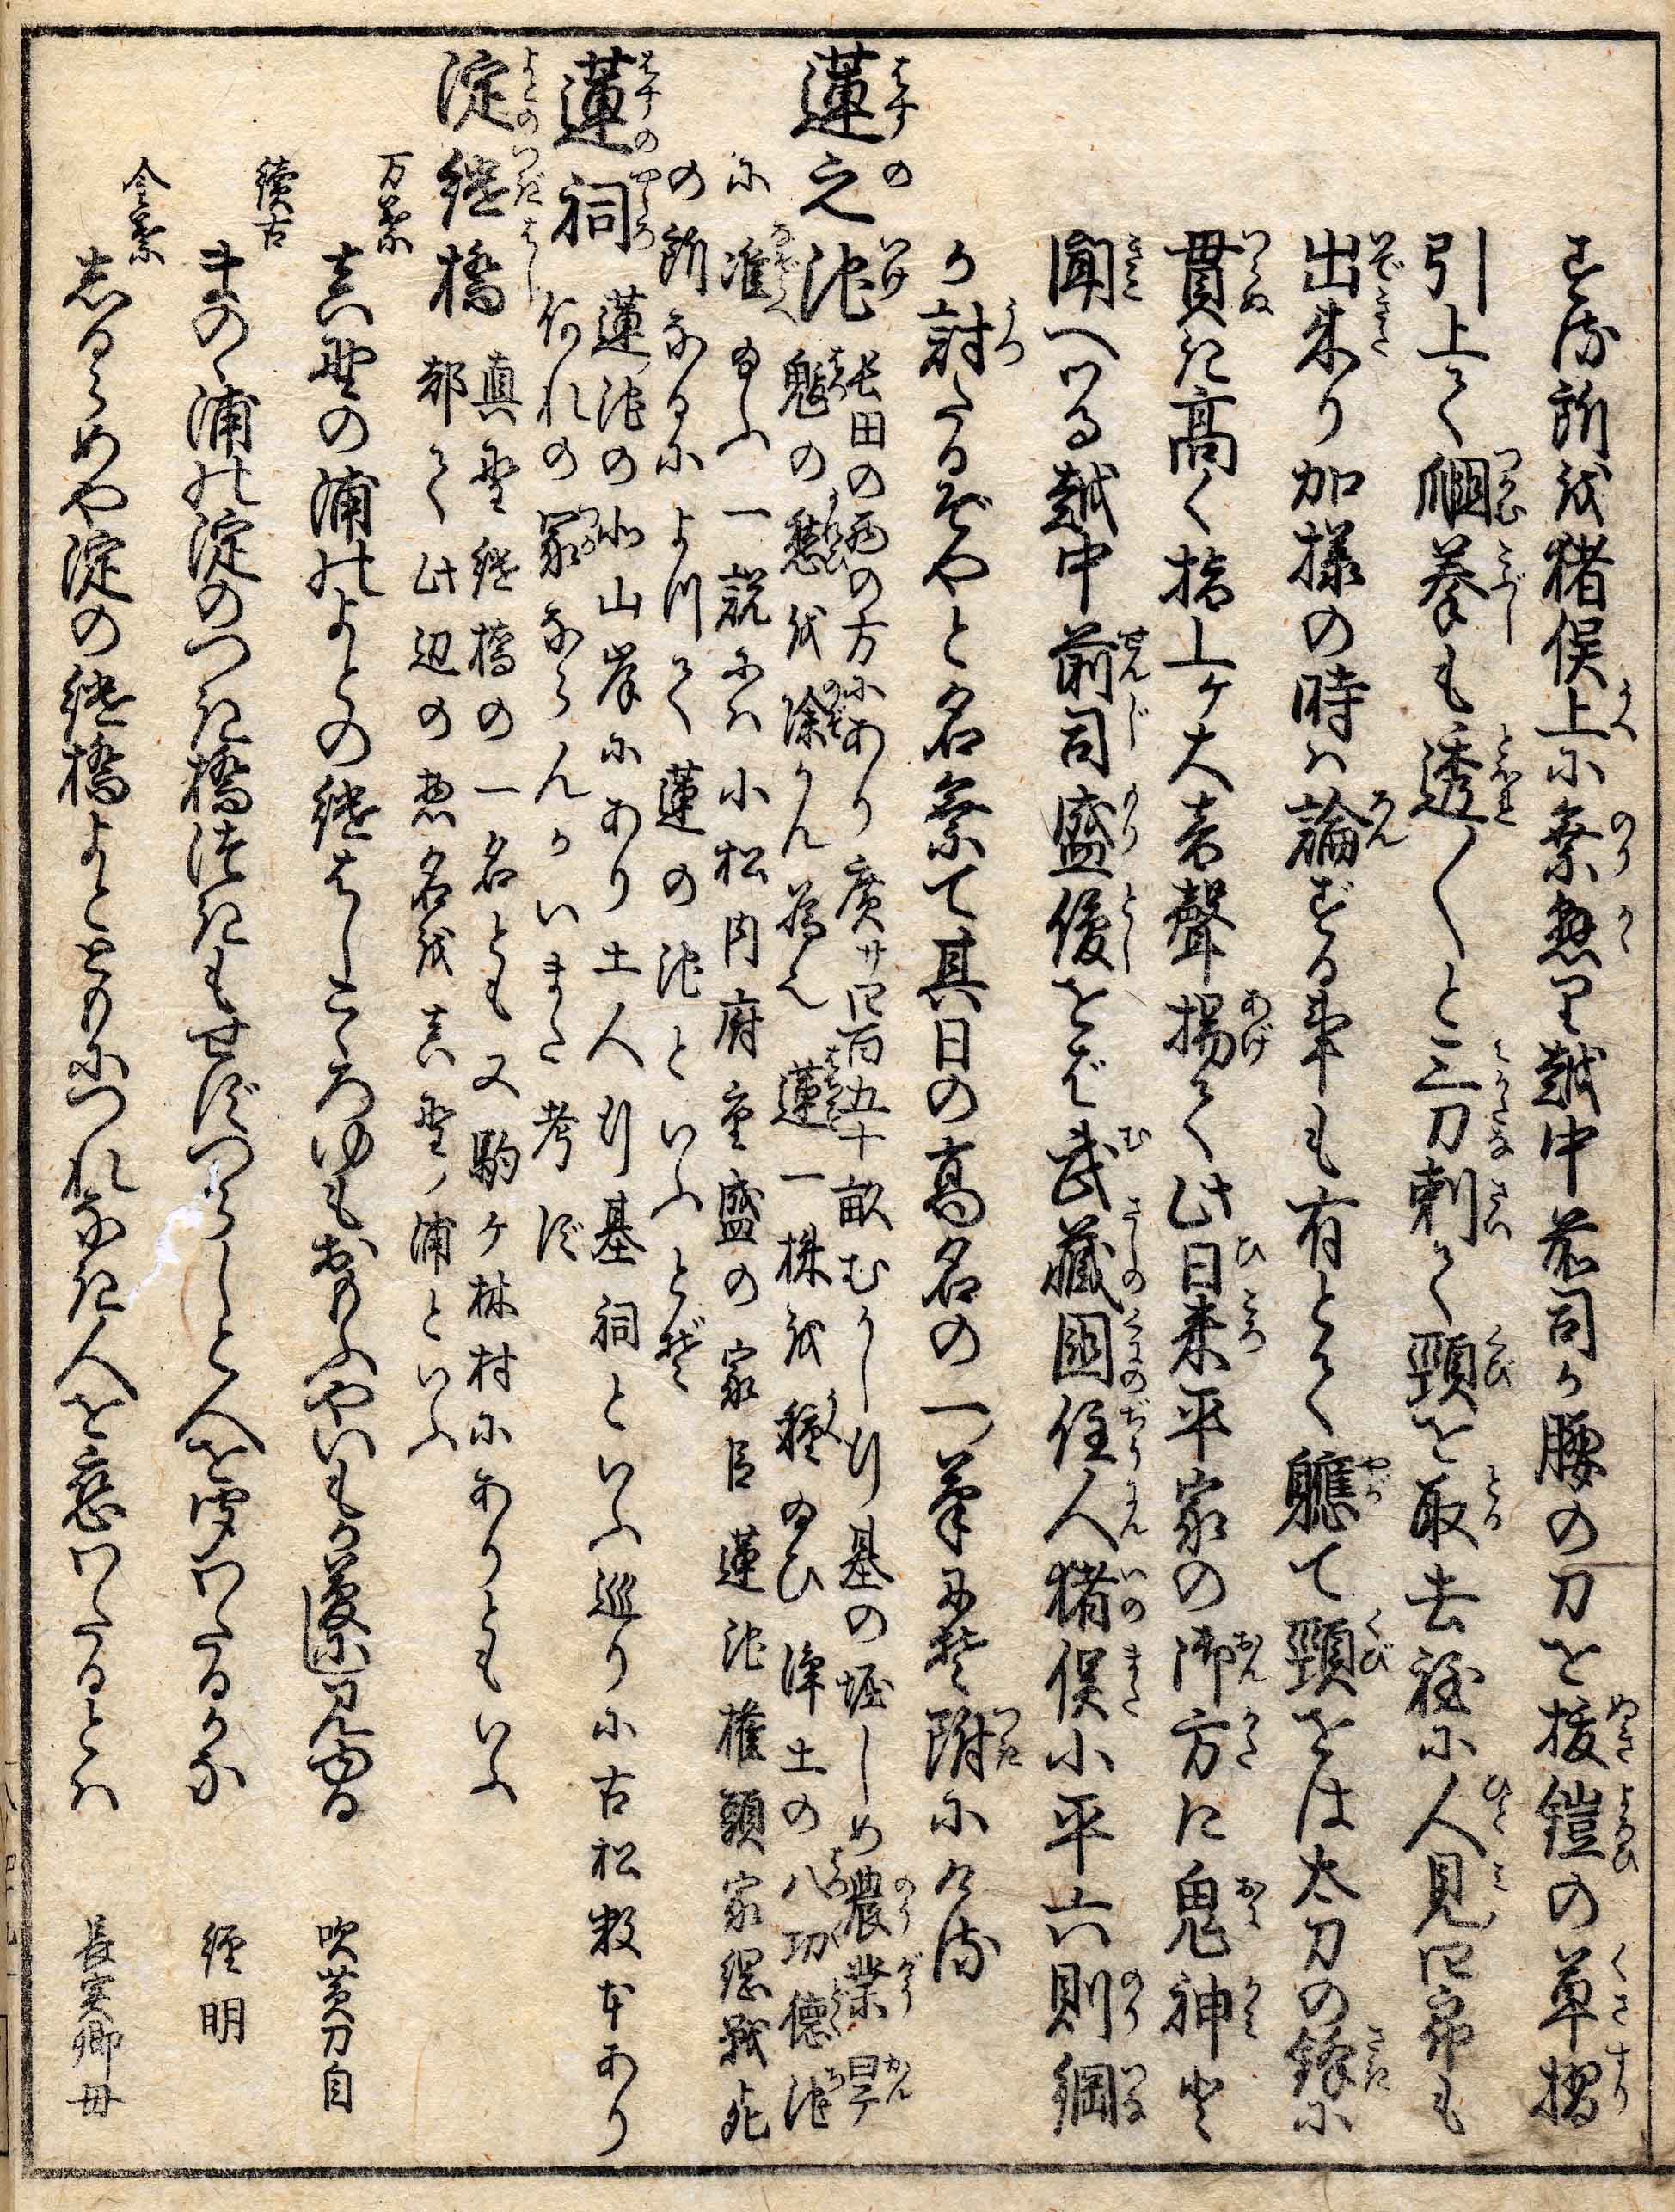 する所を猪俣上に乗懸り越中前司か腰の刀を抜鎧の草摺
引上て柄も拳も透れ〱と三刀刺て頸を取去程に人見四郎も
出来り加様の時は論ずる事も有とて軈て頸をは太刀の鋒に
貫き高く指上ケ大音聲揚て此日来平家の御方に鬼神と
聞へつる越中前司盛俊をば武藏國住人猪俣小平六則綱
か討たるぞやと名乗て其日の高名の一筆にぞ附にける
蓮之池 長田の西の方にあり廣サ四百五十畝むかし行基の堀しめ農業旱
魃の愁を除かん為又蓮一株を種ゑひ浄土の八功徳池
に准ゑふ一説には小松内府重盛の家臣蓮池權頭家綱戦死
の所なるによつて蓮の池といふとぞ
蓮祠 蓮池の北山岸にあり土人行基祠といふ巡りに古松数本あり
何れの冢ならんかいまた考ず
淀継橋 真野継橋の一名とも又駒ヶ林村にありともいふ
都て此辺の惣名を真野ノ浦といふ
万葉
真野の浦のよとの継はしこゝろゆもおもふやいもか夢に見ゆる 吹黄刀自
續古
まのゝ浦の淀のつき橋つきもせずつらしと人を聞わたるかな 經明
金葉
志るらめや淀の継橋よとともにつれなき人を戀わたるとは 長実卿母